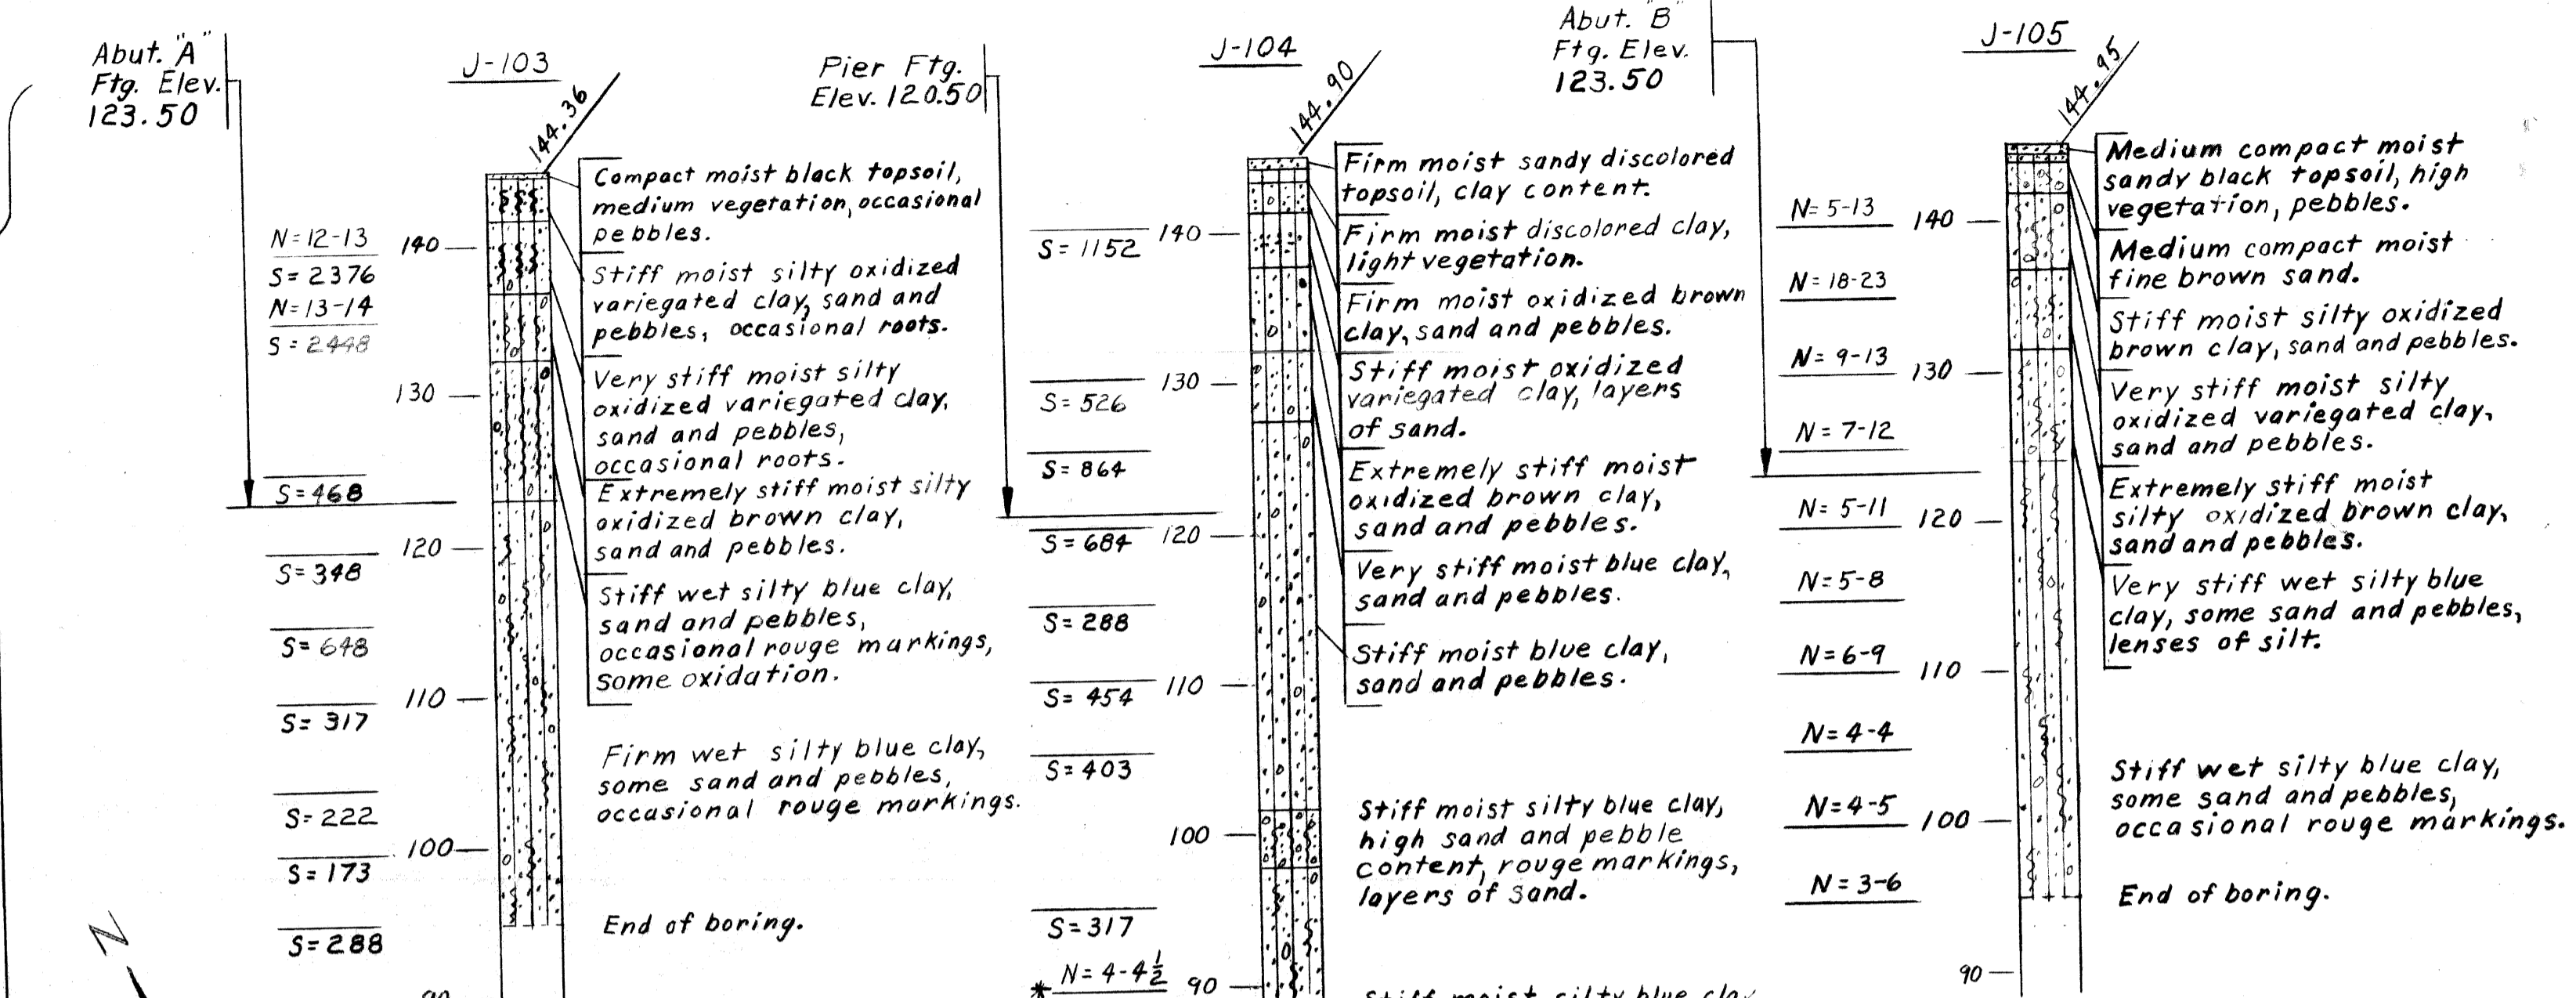 Abut. "A"
Ftg. Elev.
123.50
J-103
144.36
N=12-13
S=2376
N=13-14
S=2448
S=468
S=348
S=648
S=317
S=222
S=173
S=288
140
130
120
110
100
90
Compact moist black topsoil,
medium vegetation, occasional
pebbles.
Stiff moist silty oxidized
variegated clay, sand and
pebbles, occasional roots.
Very stiff moist silty
oxidized variegated clay,
sand and pebbles,
occasional roots.
Extremely stiff moist silty
oxidized brown clay,
sand and pebbles.
Stiff wet silty blue clay,
sand and pebbles,
occasional rouge markings,
some oxidation.
Firm wet silty blue clay,
some sand and pebbles,
occasional rouge markings.
End of boring.
N
Pier Ftg.
Elev. 120.50
J-104
144.90
S=1152
S=526
S=864
S=684
S=288
S=454
S=403
S=317
* N=4-4½
140
130
120
110
100
90
Firm moist sandy discolored
topsoil, clay content.
Firm moist discolored clay,
light vegetation.
Firm moist oxidized brown
clay, sand and pebbles.
Stiff moist oxidized
variegated clay, layers
of sand.
Extremely stiff moist
oxidized brown clay,
sand and pebbles.
Very stiff moist blue clay,
sand and pebbles.
Stiff moist blue clay,
sand and pebbles.
Stiff moist silty blue clay,
high sand and pebble
content, rouge markings,
layers of sand.
Stiff moist silty blue clay
Abut. "B"
Ftg. Elev.
123.50
J-105
144.95
N=5-13
N=18-23
N=9-13
N=7-12
N=5-11
N=5-8
N=6-9
N=4-4
N=4-5
N=3-6
140
130
120
110
100
90
Medium compact moist
sandy black topsoil, high
vegetation, pebbles.
Medium compact moist
fine brown sand.
Stiff moist silty oxidized
brown clay, sand and pebbles.
Very stiff moist silty
oxidized variegated clay,
sand and pebbles.
Extremely stiff moist
silty oxidized brown clay,
sand and pebbles.
Very stiff wet silty blue
clay, some sand and pebbles,
lenses of silt.
Stiff wet silty blue clay,
some sand and pebbles,
occasional rouge markings.
End of boring.